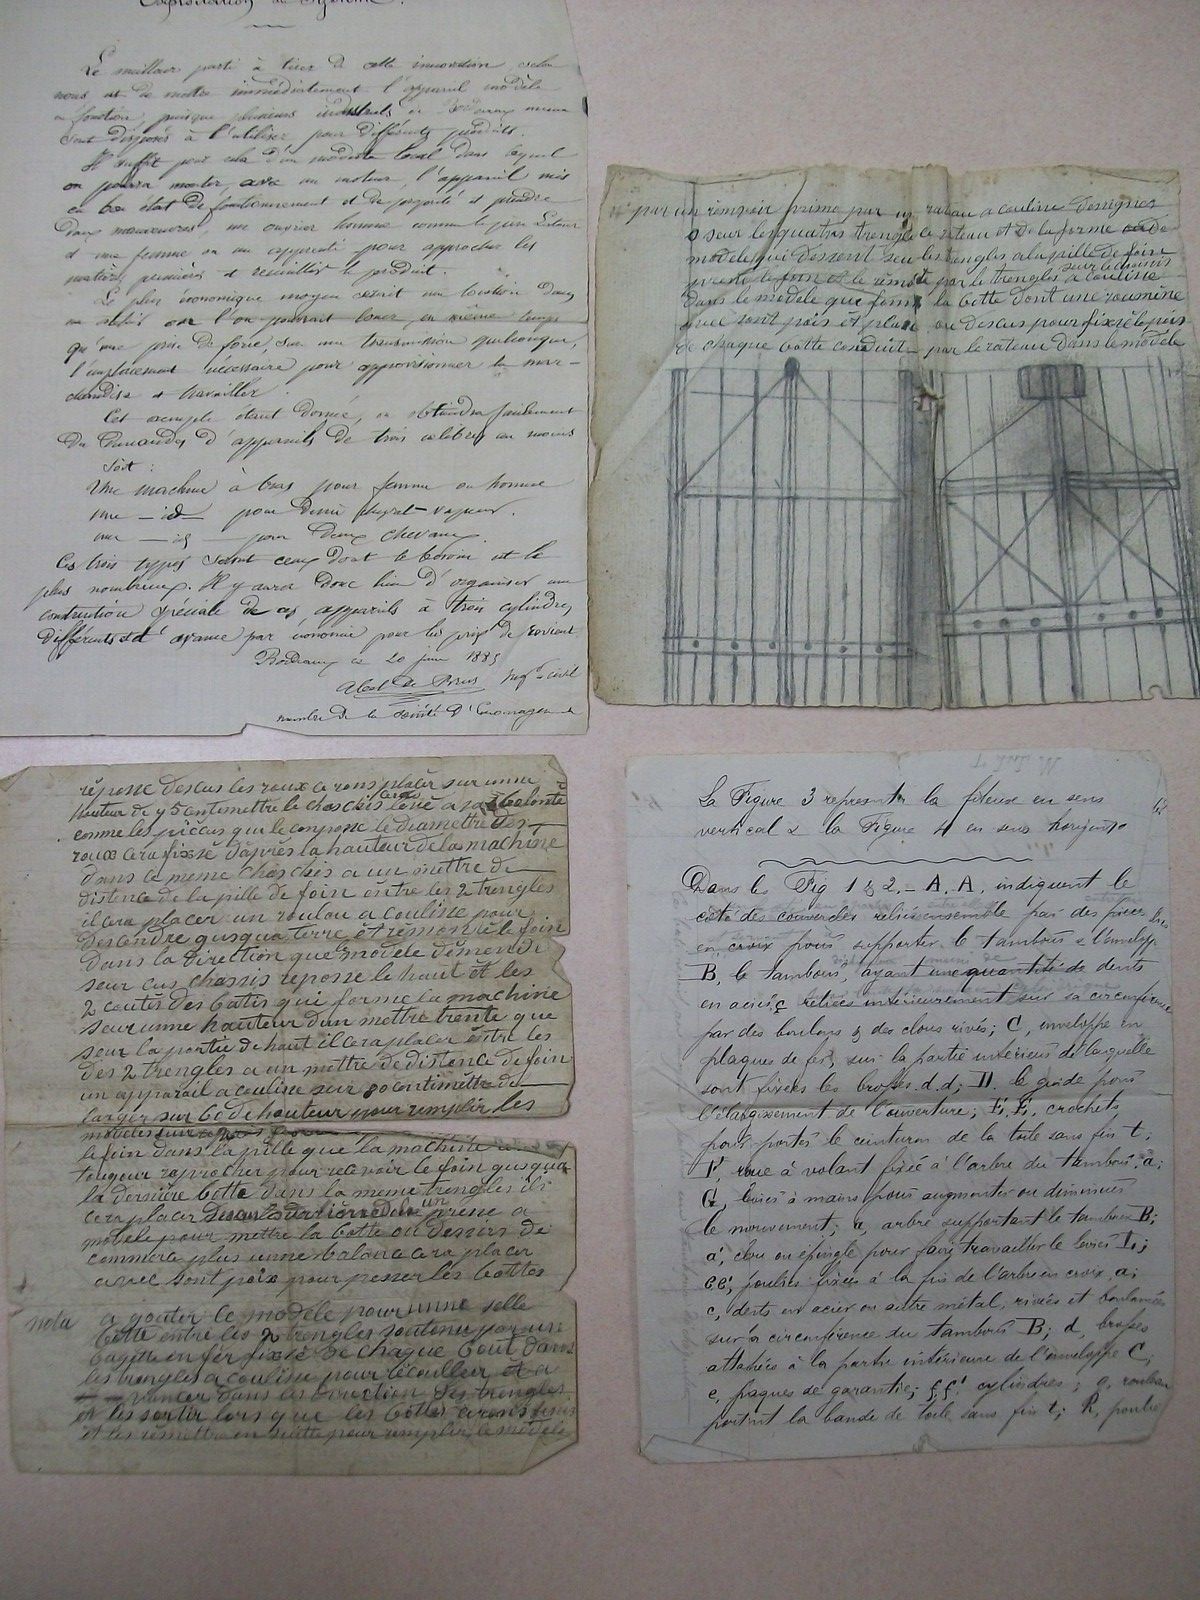 Exploitation du Système.
Le meilleur parti à tirer de cette invention selon
nous est de mettre immédiatement l'appareil modèle
en fonction, puisque plusieurs industriels de Bordeaux même
sont disposés à l'utiliser pour différents produits.
Il suffit pour cela d'un modeste local dans lequel
on pourra monter, avec un moteur, l'appareil mis
en bon état de fonctionnement et de propreté et prendre
deux manœuvres, un ouvrier homme comme le père
et une femme ou un apprenti pour approcher les
matières premières et recueillir le produit.
Le plus économique moyen serait une location dans
un atelier où l'on pourrait louer, en même temps
qu'une prise de force, sur une transmission quelconque,
l'emplacement nécessaire pour approvisionner la mar-
chandise et travailler.
Cet exemple étant donné, on obtiendra facilement
des commandes d'appareils de trois calibres au moins
soit :
Une machine à bras pour femme ou homme
une —id— pour demi cheval-vapeur.
une —id— pour deux chevaux.
Ces trois types seront ceux dont le besoin est le
plus nombreux. Il y aura donc lieu d'organiser une
construction spéciale de ces appareils à trois cylindres
différents et d'avance par économie pour les prix de revient.
Bordeaux ce 20 juin 1885
Abel de Ing.r civil
membre de la Société d'Encouragement
par un remvoir prime par un rateau a couline dessignes
o seur les quatres trengle ce rateau et de la forme de
modele qui dessent seu les trengles a la pille de foin
le foin et le remote par le trengles a coulisse
seur le chassis
dans le modele que forme la botte dont une roumène
avec sont pois et plase ou descus pour fixse le pois
de chaque botte conduit par le rateau dans le modele
réposse descus les roux ce rons placér sur unne
hauteur de 45 centimettre le chaschis cera levé a la
comme les pièces qui le conpose le diamettre des
roux cera fixsé daprès la hauteur de la machine
dans ce meme chaschis a un mettre de
distence de la pille de foin entre les 2 trengles
il cera placer un roulou a coulisse pour
descendre qusqua terre et remonté le foin
dans la direction que modele demende
seur cus chassis reposse le haut et les
2 coutés des batis qui forme la machine
seur unne hauteur dun mettre trente que
seur la portie de haut il cera placer entre les
des 2 trengles a un mettre de distence de foin
un apparail a coulisse seur 80 centimêttre de
larger sur 60 de hauteur pour remplir les
modeles
le foin dans la pille que la machine
tougour raprocher pour recevoir le foin qusqua
la derniere botte dans la meme trengles ils
cera placer un presse a
modele pour mettre la botte ou dessirs de
commerce plus unne balance cera placer
avec sont poix pour pesser les bottes
nota a gouter le modele pour unne selle
botte entre les 2 trengles soutenu par une
bagette en fer fixsé de chaque bout dans
les trengles a coulisse pour recouiller et a
vancer dans les direction des trengles
et les sortir lors que les bottes ceront finis
et les remettre en suitte pour remplir le modele
La Figure 3 représente la fileuse en sens
vertical & la Figure 4 en sens horizont.
Dans les Fig 1 & 2, – A, A, indiquent le
côté des couvercles reliés ensemble par des pièces
en croix pour supporter le tambour & l'envelopp
B, le tambour, ayant une quantité de dents
en acier, C rélices intérieurement sur sa circonférence
par des boulons & des clous rivés; C, enveloppe en
plaques de fer, sur la partie intérieure de laquelle
sont fixées les brosses d.d; D. le guide pour
l'élargissement de l'ouverture; E, E, crochets,
pour porter le ceinturon de la toile sans fin t;
F, roue à volant fixée à l'arbre du tambour, a;
G, leviers à mains pour augmenter ou diminuer
le mouvement; a, arbre supportant le tambour B;
a', clou ou épingle pour faire travailler le levier L;
ee', poulies fixées à la fin de l'arbre en croix, a;
c, dents en acier ou autre métal, rivées et boulonnées
sur la circonférence du tambour B; d, brosses
attachées à la partie intérieure de l'enveloppe C;
e, plaques de garantie; f, f' cylindres; g, rouleau
portant la bande de toile sans fin t; h, poulie